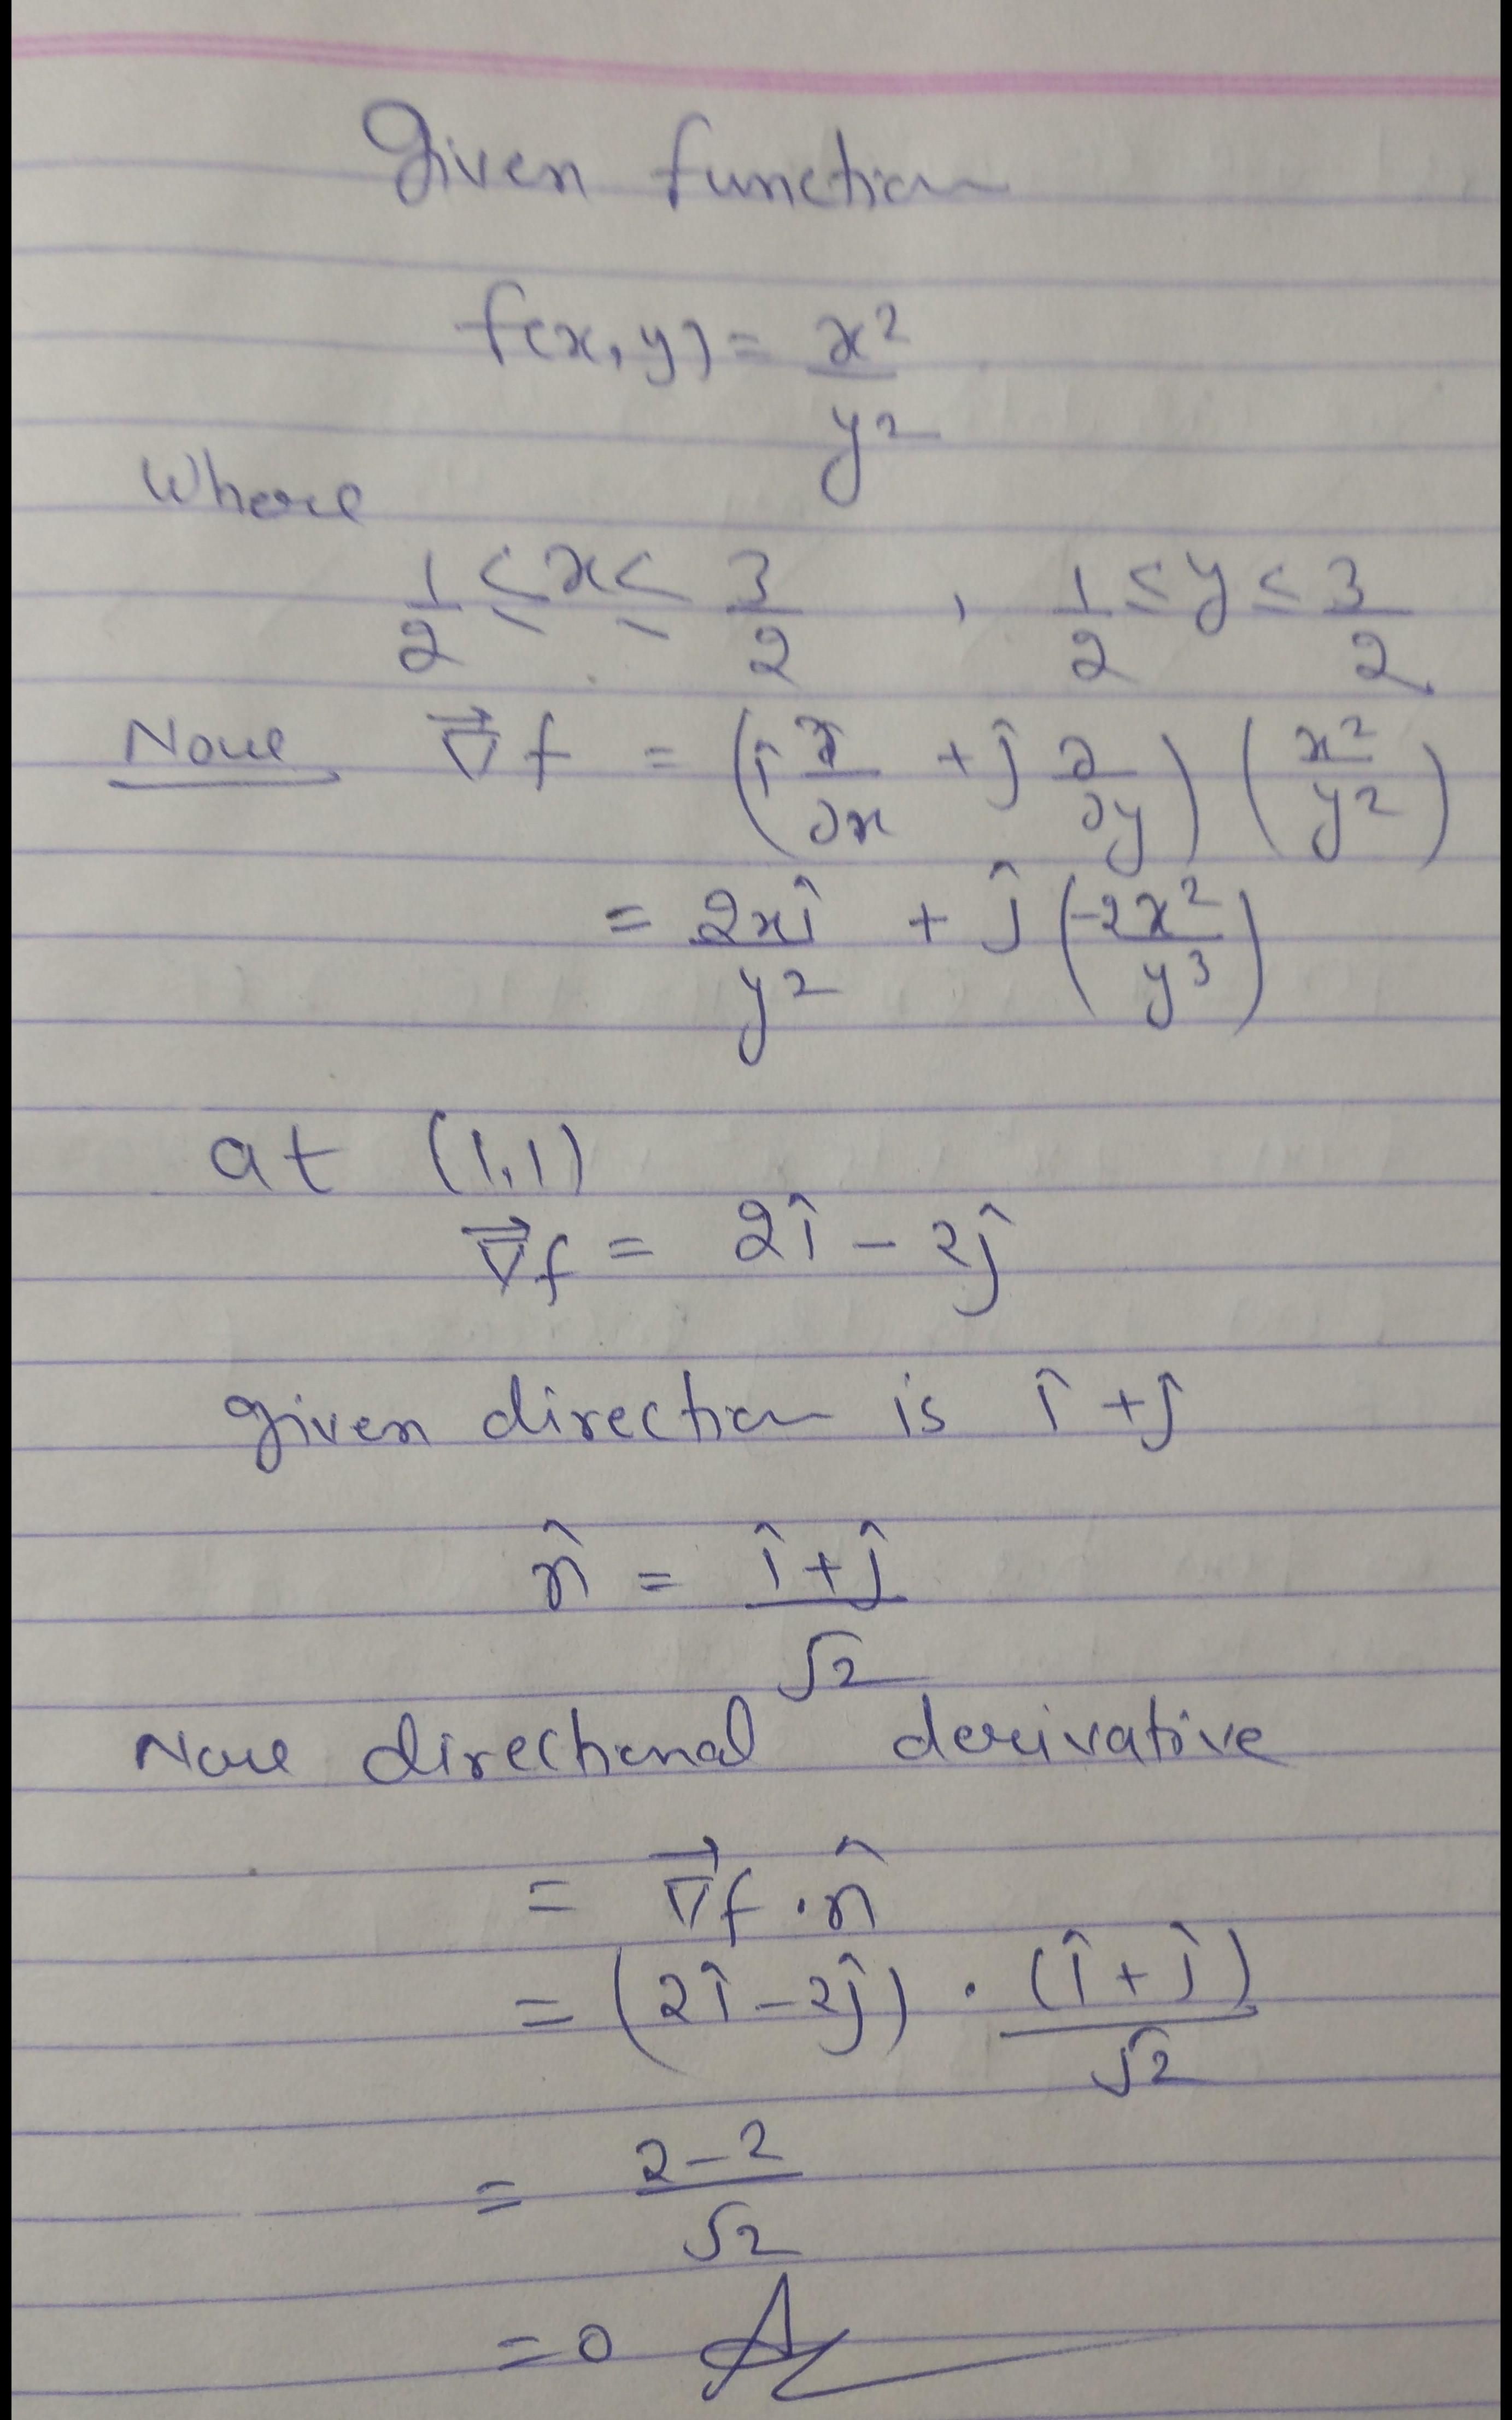 Given function
f(x,y) = x²/y²
Where
1/2 ≤ x ≤ 3/2 , 1/2 ≤ y ≤ 3/2.
Now ∇⃗f = (î ∂/∂x + ĵ ∂/∂y) (x²/y²)
= 2xî/y² + ĵ (-2x²/y³)
at (1,1)
∇⃗f = 2î - 2ĵ
given direction is î + ĵ
n̂ = î+ĵ/√2
Now directional derivative
= ∇⃗f · n̂
= (2î - 2ĵ) · (î + ĵ)/√2
= 2-2/√2
= 0